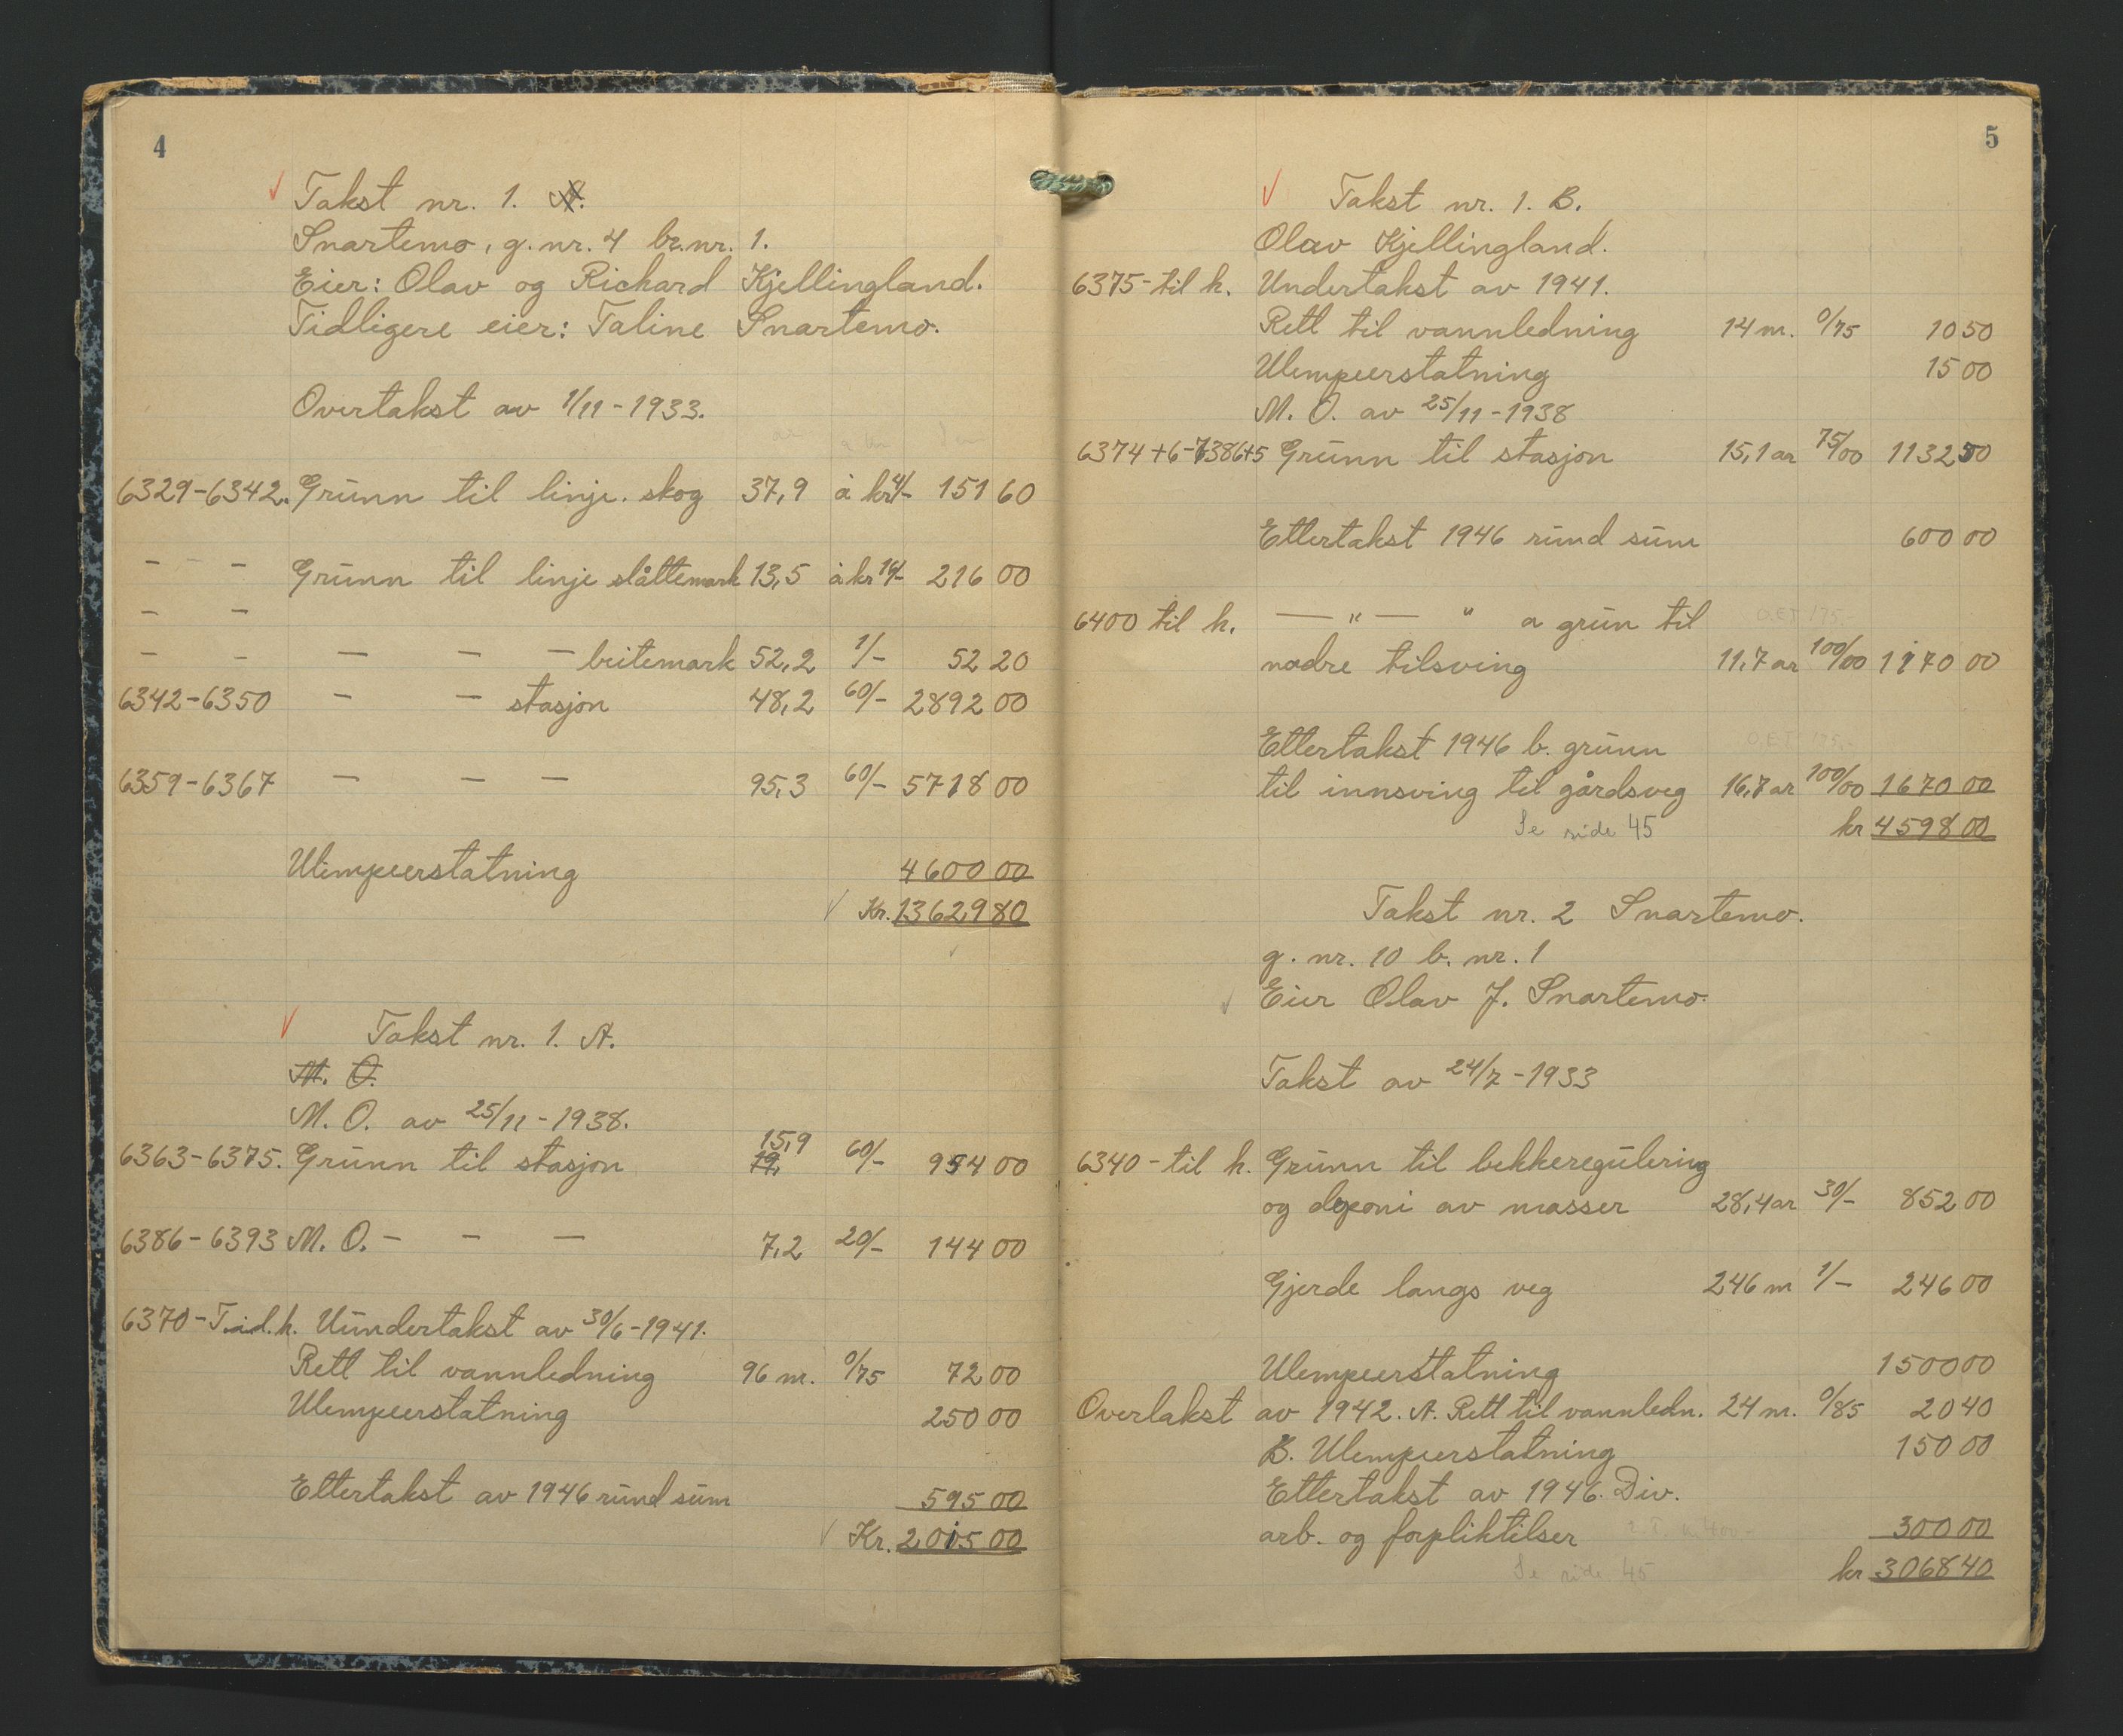 4
Takst nr. 1.
Snartemo, g.nr. 4 br.nr. 1.
Eier: Olav og Richard Kjellingland.
Tidligere eier: Taline Snartemo.
Overtakst av 1/11-1933.
6329-6342. Grunn til linje. skog 37,9 à kr 4/- 151 60
- - - Grunn til linje slåttemark 13,5 à kr 16/- 216 00
- -
- - - - - beitemark 52,2 1/- 52 20
6342-6350 - - stasjon 48,2 60/- 2892 00
6359-6367 - - - 95,3 60/- 5718 00
Ulempeerstatning 4600 00
Kr. 13629 80
Takst nr. 1. A.
M. O.
M. O. av 25/11-1938.
6363-6375. Grunn til stasjon 15,9 19, 60/- 954 00
6386-6393 M. O. - - - 7,2 20/- 144 00
6370-T.id.h. Uundertakst av 30/6-1941.
Rett til vannledning 96 m. 0/75 72 00
Ulempeerstatning 250 00
Ettertakst av 1946 rund sum 595 00
Kr. 2015 00
5
Takst nr. 1. B.
Olav Kjellingland.
6375-til h. Undertakst av 1941.
Rett til vannledning 14 m. 0/75 10 50
Ulempeerstatning 15 00
M. O. av 25/11-1938
6374+6-7386+5 Grunn til stasjon 15,1 ar 75/00 1132 50
Ettertakst 1946 rund sum 600 00
6400 til h. — " — " a grun til
nadre tilsving 11,7 ar 100/00 1170 00
Ettertakst 1946 b. grunn
til innsving til gårdsveg 16,7 ar 100/00 1670 00
Se side 45 kr 4598 00
Takst nr. 2 Snartemo.
g. nr. 10 b. nr. 1
Eier Olav J. Snartemo.
Takst av 24/7-1933
6340-til h. Grunn til bekkeregulering
og deponi av masser 28,4 ar 30/- 852 00
Gjerde langs veg 246 m 1/- 246 00
Ulempeerstatning 1500 00
Overtakst av 1942. A. Rett til vannledn. 24 m. 0/85 20 40
B. Ulempeerstatning 150 00
Ettertakst av 1946. Div.
arb. og forpliktilser 300 00
Se side 45 kr 3068 40